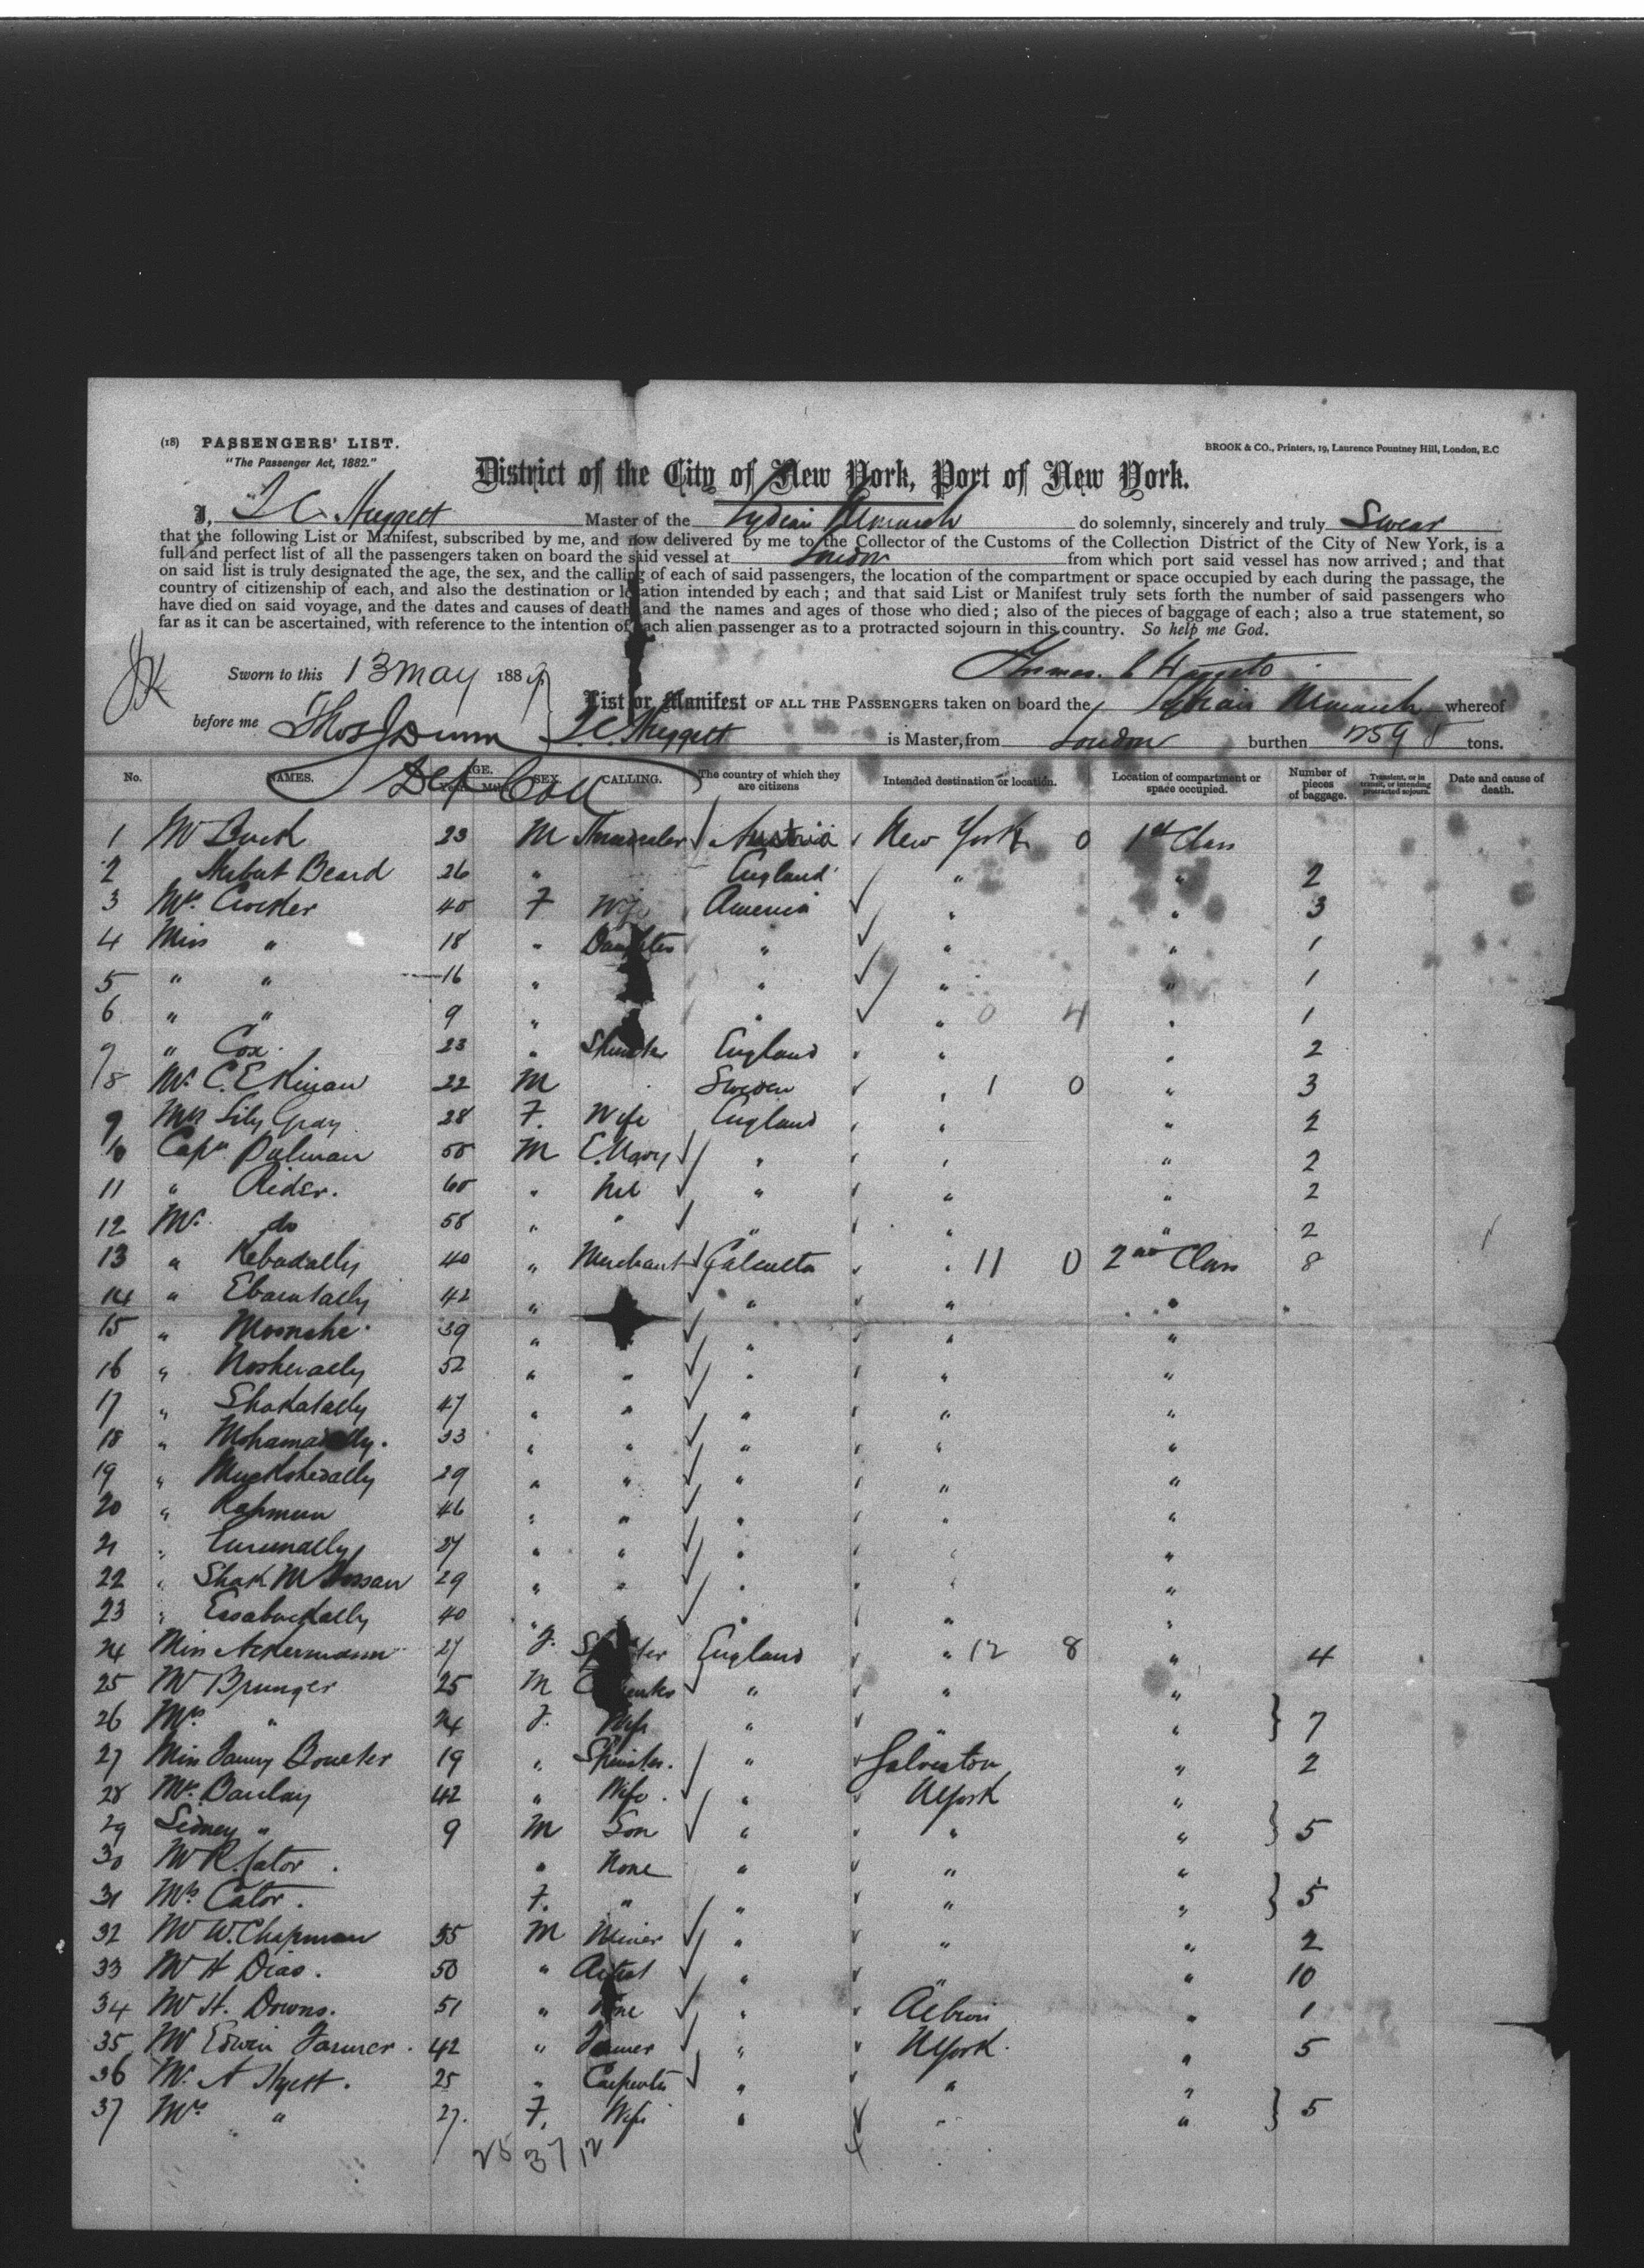 (18) PASSENGERS' LIST.
"The Passenger Act, 1882."
BROOK & CO., Printers, 19, Laurence Pountney Hill, London, E.C
District of the City of New York, Port of New York.
I, T C Huggett Master of the Lydian Monarch do solemnly, sincerely and truly Swear
that the following List or Manifest, subscribed by me, and now delivered by me to the Collector of the Customs of the Collection District of the City of New York, is a
full and perfect list of all the passengers taken on board the said vessel at London from which port said vessel has now arrived; and that
on said list is truly designated the age, the sex, and the calling of each of said passengers, the location of the compartment or space occupied by each during the passage, the
country of citizenship of each, and also the destination or location intended by each; and that said List or Manifest truly sets forth the number of said passengers who
have died on said voyage, and the dates and causes of death and the names and ages of those who died; also of the pieces of baggage of each; also a true statement, so
far as it can be ascertained, with reference to the intention of each alien passenger as to a protracted sojourn in this country. So help me God.
JK Sworn to this 13 May 188 Thomas C Huggett
List or Manifest OF ALL THE PASSENGERS taken on board the Lydian Monarch whereof
before me Thos J Dunn T.C. Huggett is Master, from London burthen tons.
Dep Coll
No. NAMES. AGE. SEX. CALLING. The country of which they are citizens Intended destination or location. Location of compartment or space occupied. Number of pieces of baggage. Transient, or in transit, or intending protracted sojourn. Date and cause of death.
1 Mr Buck 23 M Austria New York 0 1st Class
2 Beard 26 " England " " 2
3 Mrs Crocker 40 F Wife America " " 3
4 Miss " 18 " Daughter " " " 1
5 " " 16 " " " " 1
6 " " 9 " " " 0 4 " 1
7 " Cox 23 " England " " 2
8 Mr C. Ekman 22 M Sweden " 1 0 " 3
9 Mrs Lily Gray 28 F. Wife England " " 2
10 Capn Pulman 55 M E. Navy " " " 2
11 " Rider. 60 " Nil " " " 2
12 Mr do 58 " " " " " 2
13 " Kebadally 40 " Merchant Calcutta " 11 0 2nd Class 8
14 " Ebarutally 42 " " " "
15 " Moonshe 39 " " " "
16 " Noshurally 52 " " " " "
17 " Shakatally 47 " " " " "
18 " 33 " " " " "
19 " Muckshedally 29 " " " " "
20 " Rahmun 46 " " " " "
21 " 27 " " " " "
22 " Shak M Hossan 29 " " " " "
23 " Essabuckally 40 " " " "
24 Miss Ackermann 27 F. England " 12 8 " 4
25 Mr Brunger 25 M " " "
26 Mrs " 24 F. Wife " " " } 7
27 Miss Fanny Boulter 19 " Spinster. " Galveston " 2
28 Mrs Barclay 42 " Wife. " NYork "
29 Sidney " 9 M Son " " " } 5
30 Mr R. Cator. " None " " "
31 Mrs Cator. F. " " " " } 5
32 Mr W. Chapman 35 M Miner " " " 2
33 Mr H Dias. 50 " Artist " " " 10
34 Mr H. Downs. 51 " None " Albion " 1
35 Mr Edwin Farmer. 42 " Farmer " NYork. " 5
36 Mr A Hyett. 25 " Carpenter " " "
37 Mrs " 27. F. Wife " " " } 5
25 37 12